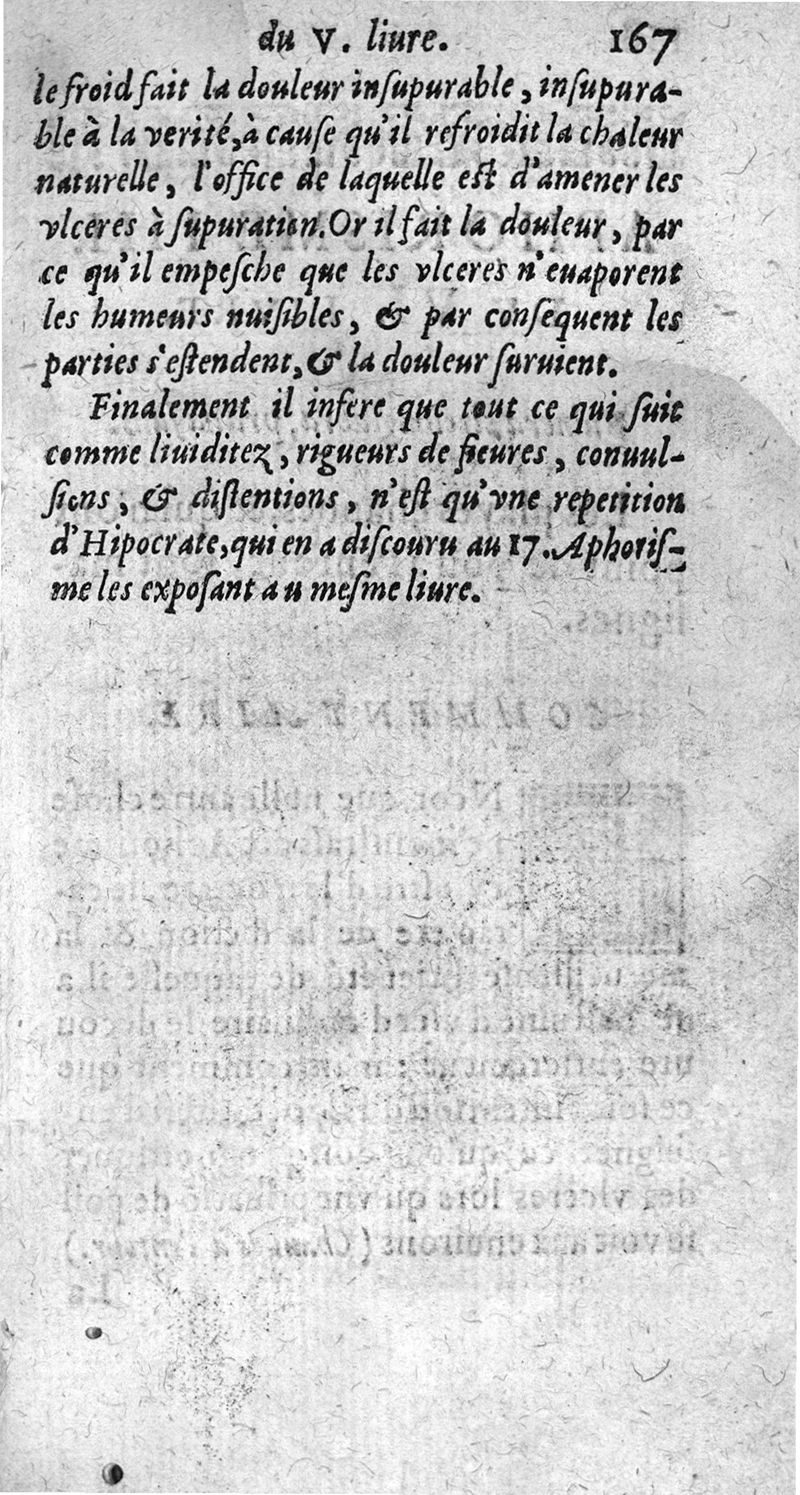 du V. liure. 167
le froid fait la douleur inſupurable, inſupura-
ble à la verité, à cauſe qu'il refroidit la chaleur
naturelle, l'office de laquelle eſt d'amener les
vlceres à ſupuration. Or il fait la douleur, par
ce qu'il empeſche que les vlceres n'euaporent
les humeurs nuiſibles, & par conſequent les
parties s'eſtendent, & la douleur ſuruient.
Finalement il infere que tout ce qui ſuit
comme liuiditez, rigueurs de fieures, conuul-
ſions, & diſtentions, n'eſt qu'vne repetition
d'Hipocrate, qui en a diſcouru au 17. Aphoriſ-
me les expoſant au meſme liure.